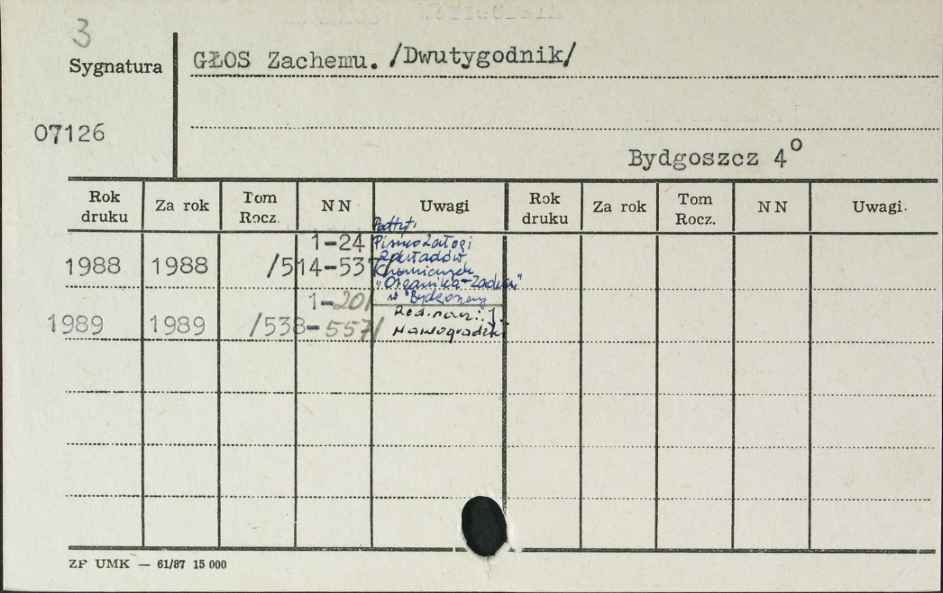 3
Sygnatura
GŁOS Zachemu. /Dwutygodnik/
07126
Bydgoszcz 4°
Rok druku Za rok Tom Rocz. NN Uwagi Rok druku Za rok Tom Rocz. NN Uwagi.
Podtyt.:
1-24 Pismo Załogi
1988 1988 /514-537/ Zakładów
Chemicznych
"Organika-Zachem"
1-20 w Bydgoszczy
1989 1989 /538-557/ Red. nacz.: J.
Nawogrodzki
ZP UMK — 61/87 15 000